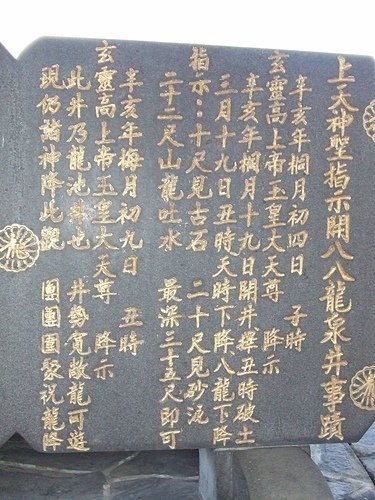 上天神聖指示開八八龍泉井事蹟
辛亥年桐月初四日 子時
玄靈高上帝玉皇大天尊 降示
辛亥年桐月十九日開井擇丑時破土
三月十九日丑時天時下降八龍下降
指示:十尺見古石 二十尺見砂泥
二十二尺山龍吐水 最深三十五尺即可
辛亥年梅月初九日 丑時
玄靈高上帝玉皇大天尊 降示
此井乃龍池井也 井勢寬敞龍可遊
現仍諸神降此觀 團團圍聚祝龍降
龍